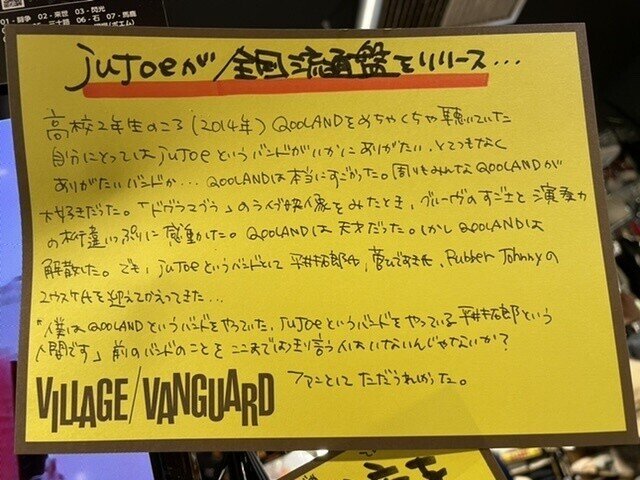 01 - 闘争 02 - 来世 03 - 閃光
06 - 石 07 - 馬鹿
jUJOeが全国流通盤をリリース…
高校2年生のころ(2014年)QOOLANDをめちゃくちゃ聴いていた
自分にとってはjuJoeというバンドがいかにありがたい、とてつもなく
ありがたいバンドか…QOOLANDは本当にすごかった。周りもみんなQOOLANDが
大好きだった。「ドグラマグラ」のライブ映像をみたとき、グルーヴのすごさと演奏力
の桁違いっぷりに感動した。QOOLANDは天才だった。しかしQOOLANDは
解散した。でも、juJoeというバンドとして平井拓郎氏、夢ひでき氏、Rubber Johnnyの
ユウスケ氏を迎えてかえってきた…
「僕はQOOLANDというバンドをやっていた、juJoeというバンドをやっている平井拓郎という
人間です」前のバンドのことをここまではっきり言う人はいないんじゃないか?
ファンとしてただうれしかった。
VILLAGE/VANGUARD